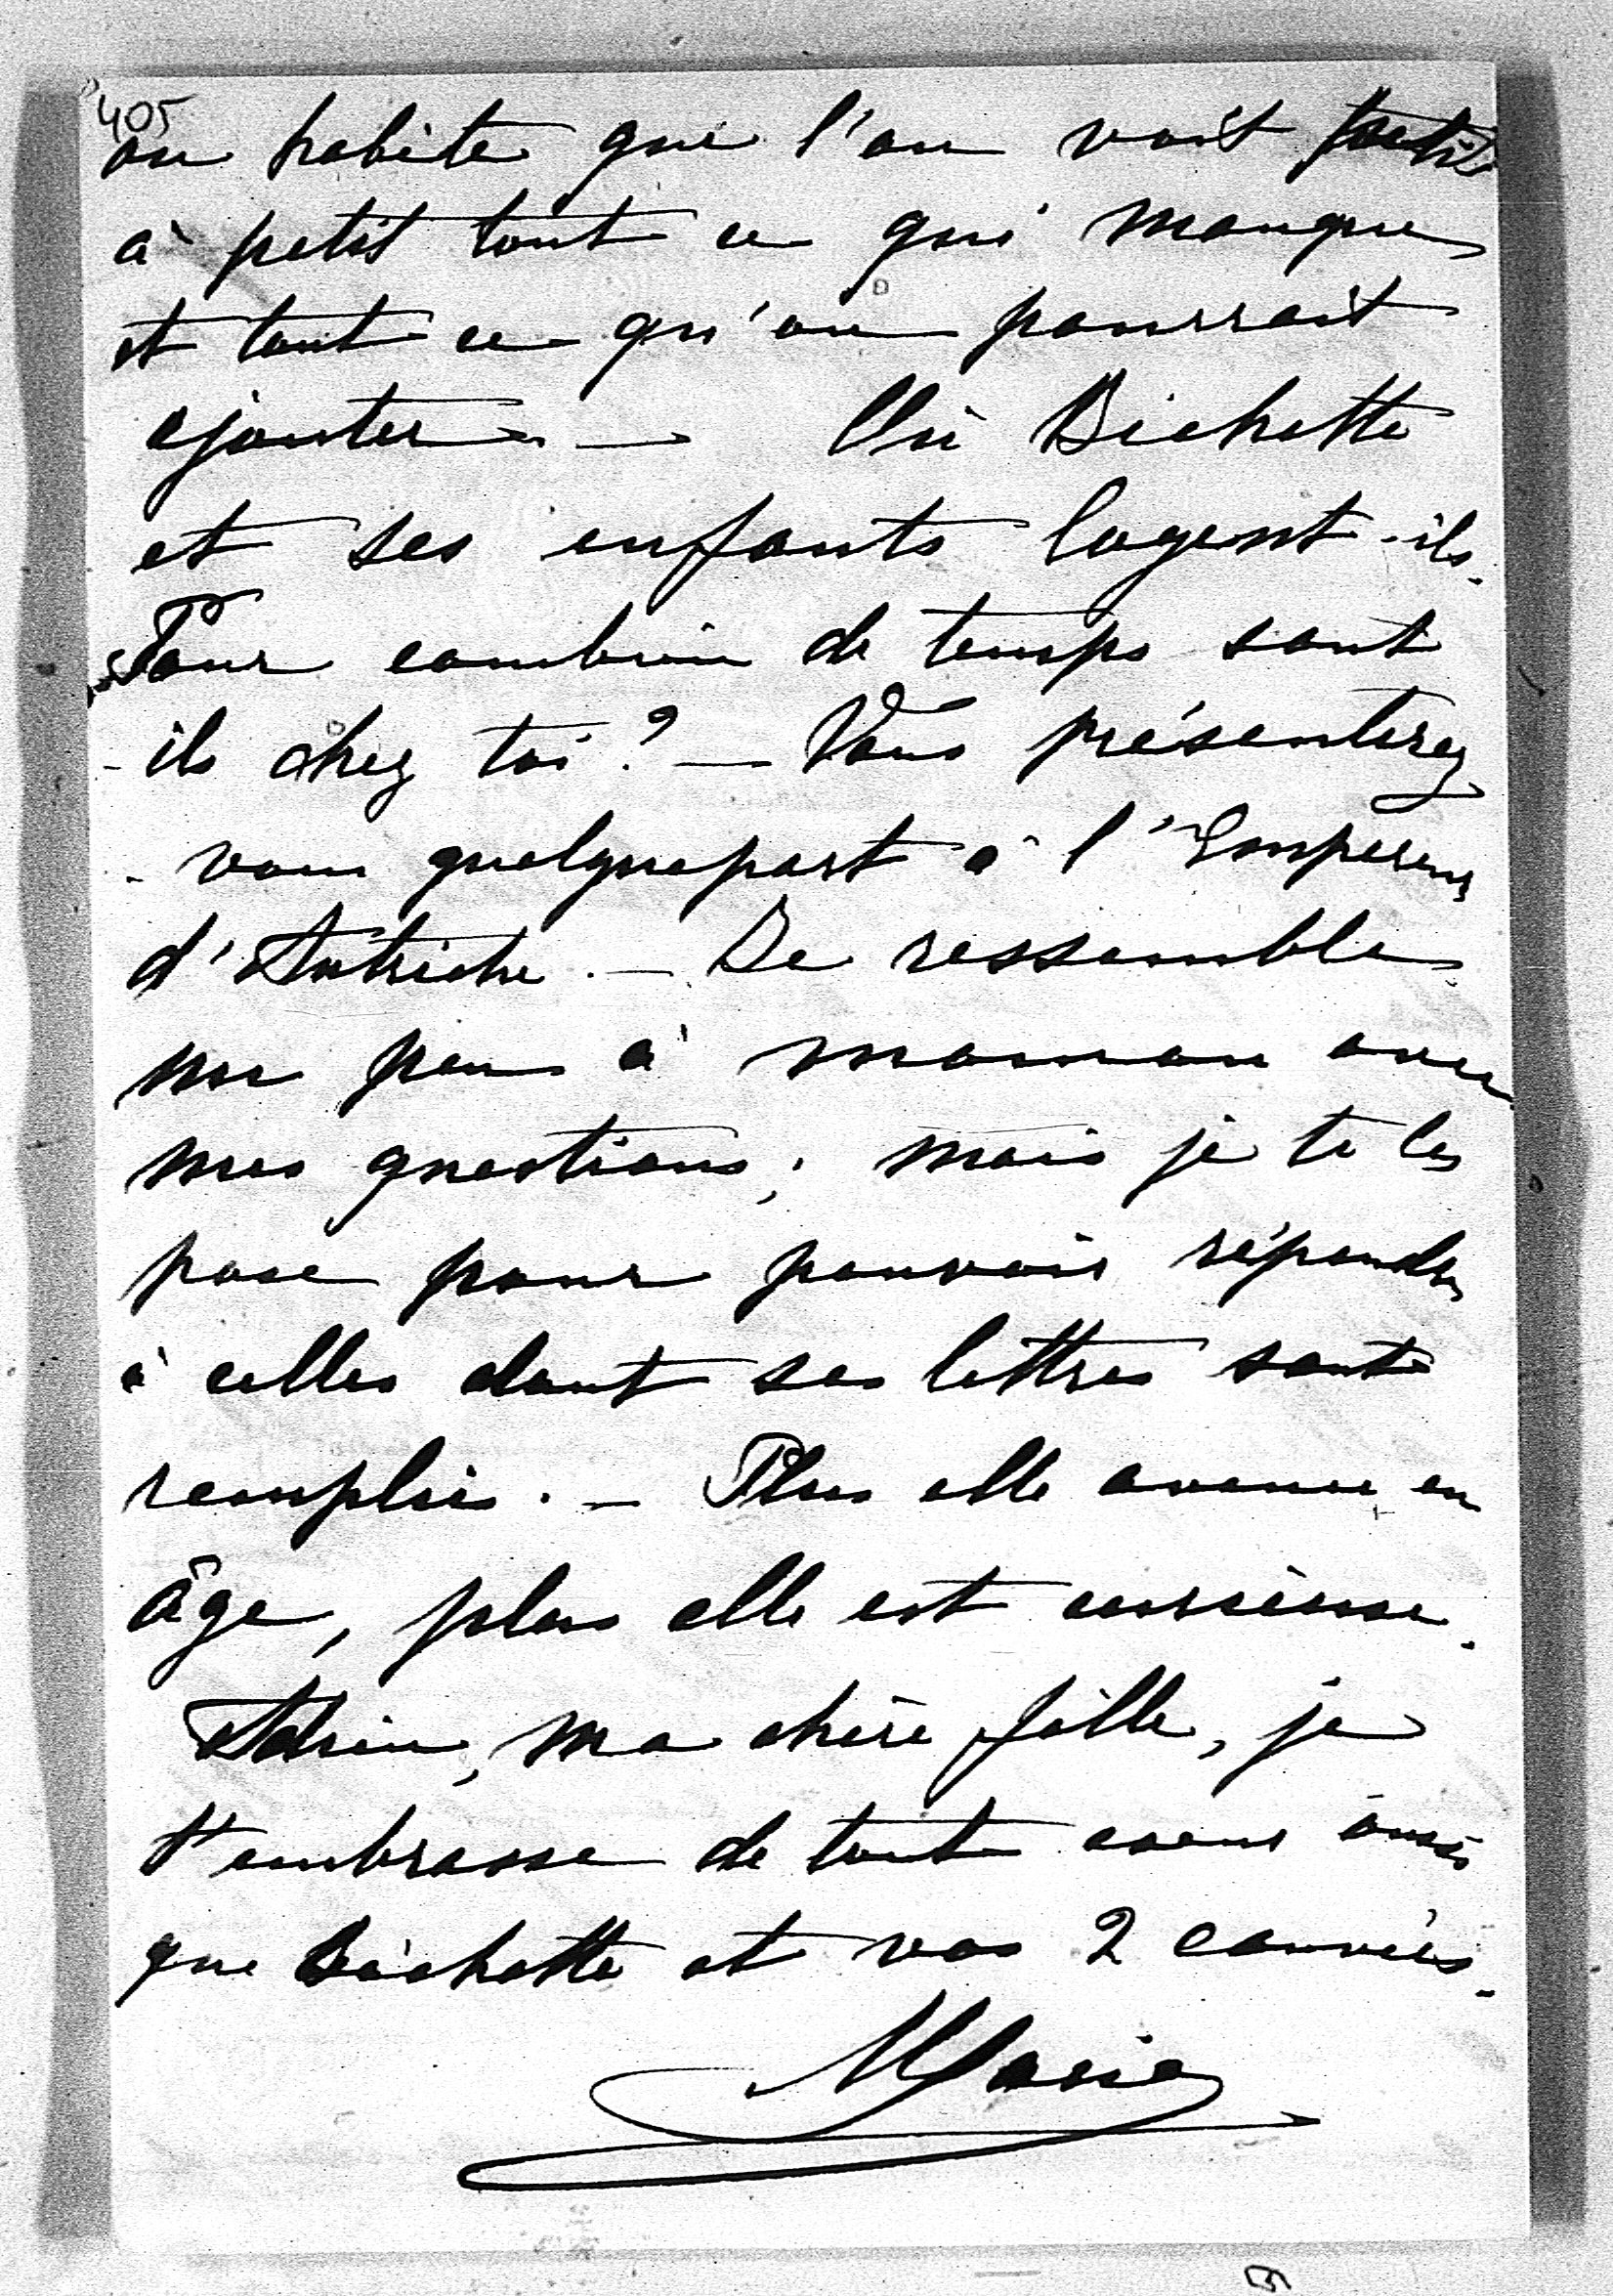 405
on habite que l'on voit petit
à petit tout ce qui manque
et tout ce qu'on pourrait
ajouter. — Où Bichette
et ses enfants logent-ils.
Pour combien de temps sont
-ils chez toi ? — Vous présenterez
-vous quelquepart à l'Empereur
d'Autriche. — Je ressemble
un peu à maman avec
mes questions ; mais je te les
pose pour pouvoir répondre
à celles dont ses lettres sont
remplies. — Plus elle avance en
âge, plus elle est curieuse.
Adieu, ma chère fille, je
t'embrasse de tout coeur ainsi
que Bichette et vos 2
Marie